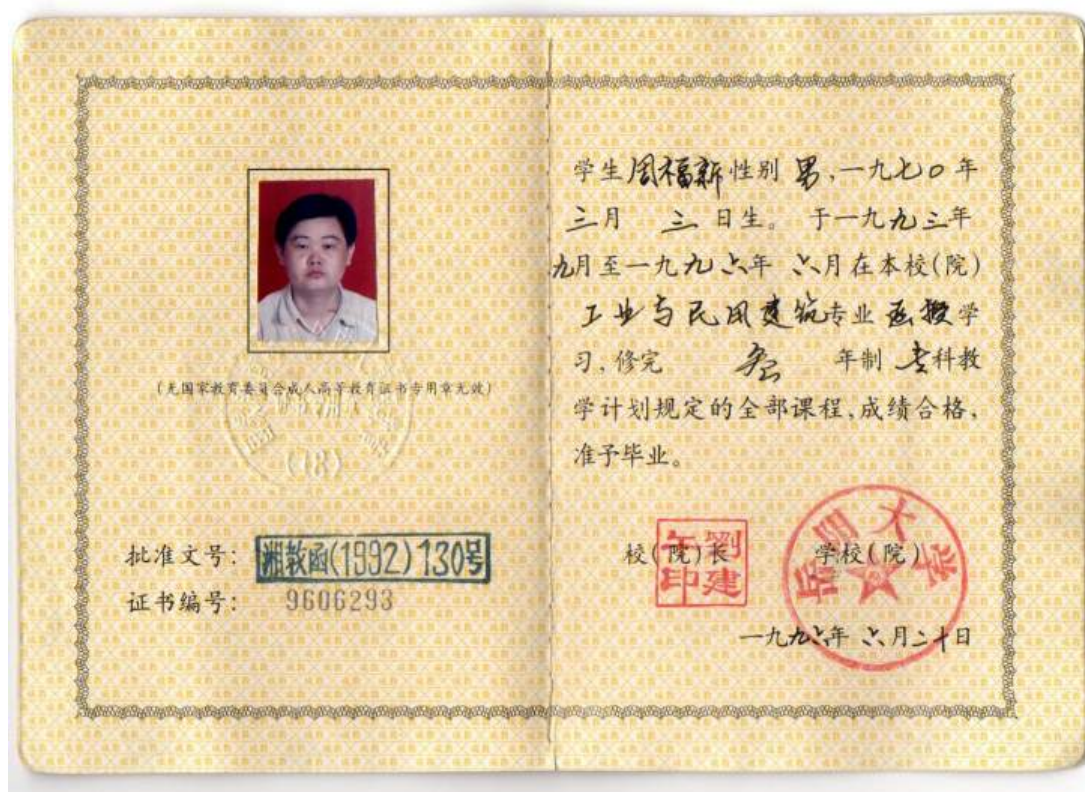 (无国家教育委员会成人高等教育证书专用章无效)
(18)
批准文号: 湘教函(1992)130号
证书编号: 9606293
学生周福新性别 男,一九七〇年
三月 三 日生。 于一九九三年
九月至一九九六年 六月在本校(院)
工业与民用建筑专业 函授学
习,修完 叁 年制 专科教
学计划规定的全部课程,成绩合格,
准予毕业。
校(院)长 学校(院)
劉建午印
岳阳大学
一九九六年 六月二十日